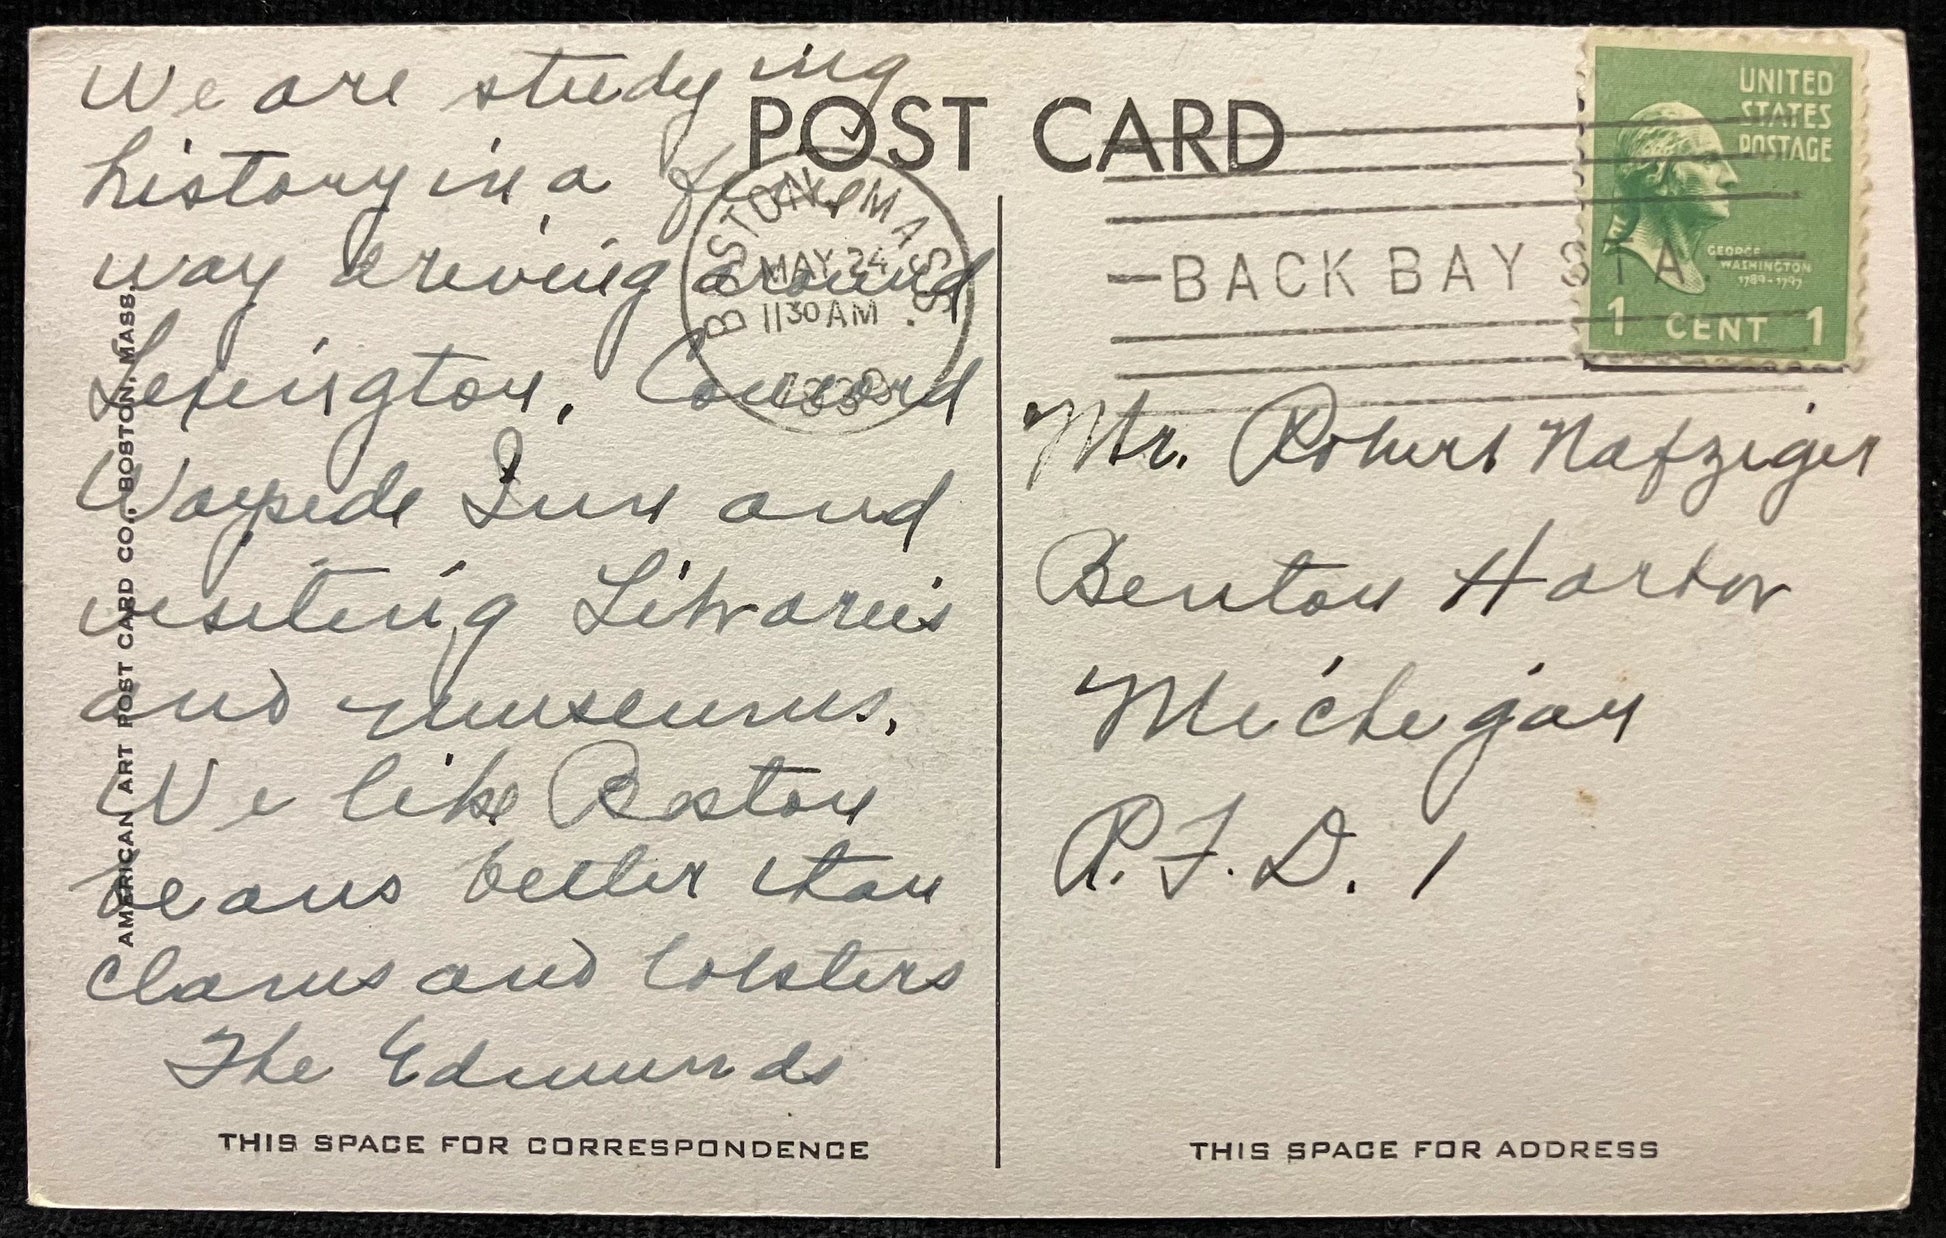 We are studying
history in a fine
way driving around
Lexington, Concord
Wayside Inn and
visiting Libraries
and museums.
We like Boston
beans better than
clams and lobsters
The Edmunds
THIS SPACE FOR CORRESPONDENCE
AMERICAN ART POST CARD CO., BOSTON, MASS.
POST CARD
BOSTON, MASS.
MAY 24
1130 AM
1939
BACK BAY STA.
UNITED
STATES
POSTAGE
GEORGE
WASHINGTON
1789-1797
1 CENT 1
Mr. Robert Nafziger
Benton Harbor
Michigan
R.F.D. 1
THIS SPACE FOR ADDRESS